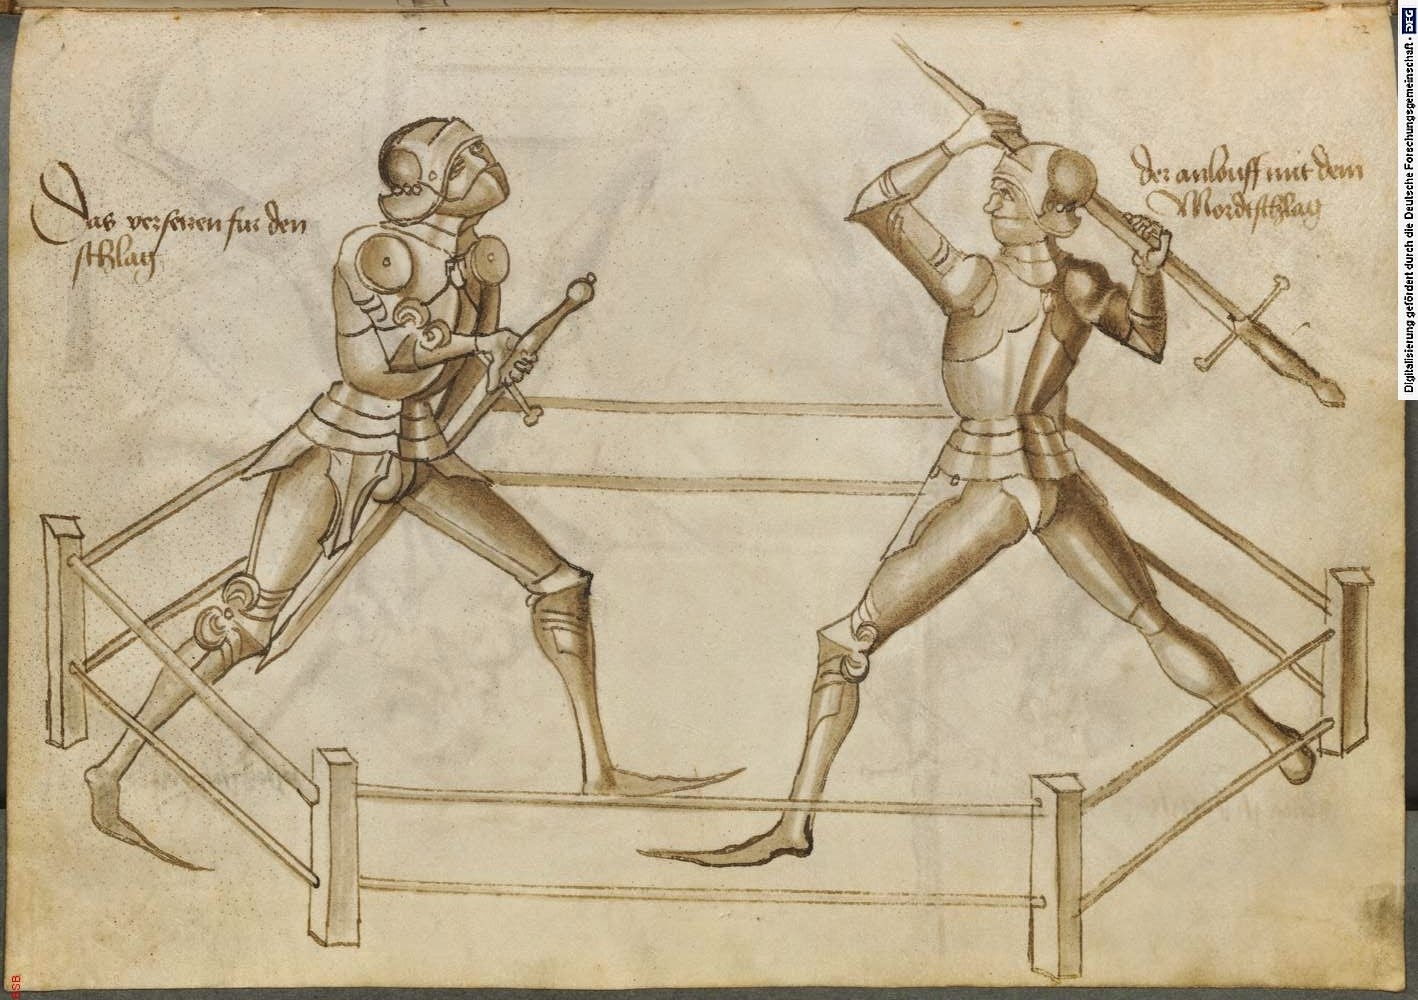 Das versetzen fur den
schlag
der anlouff mit dem
Mordtschlag
72
Digitalisierung gefördert durch die Deutsche Forschungsgemeinschaft - DFG
BSB